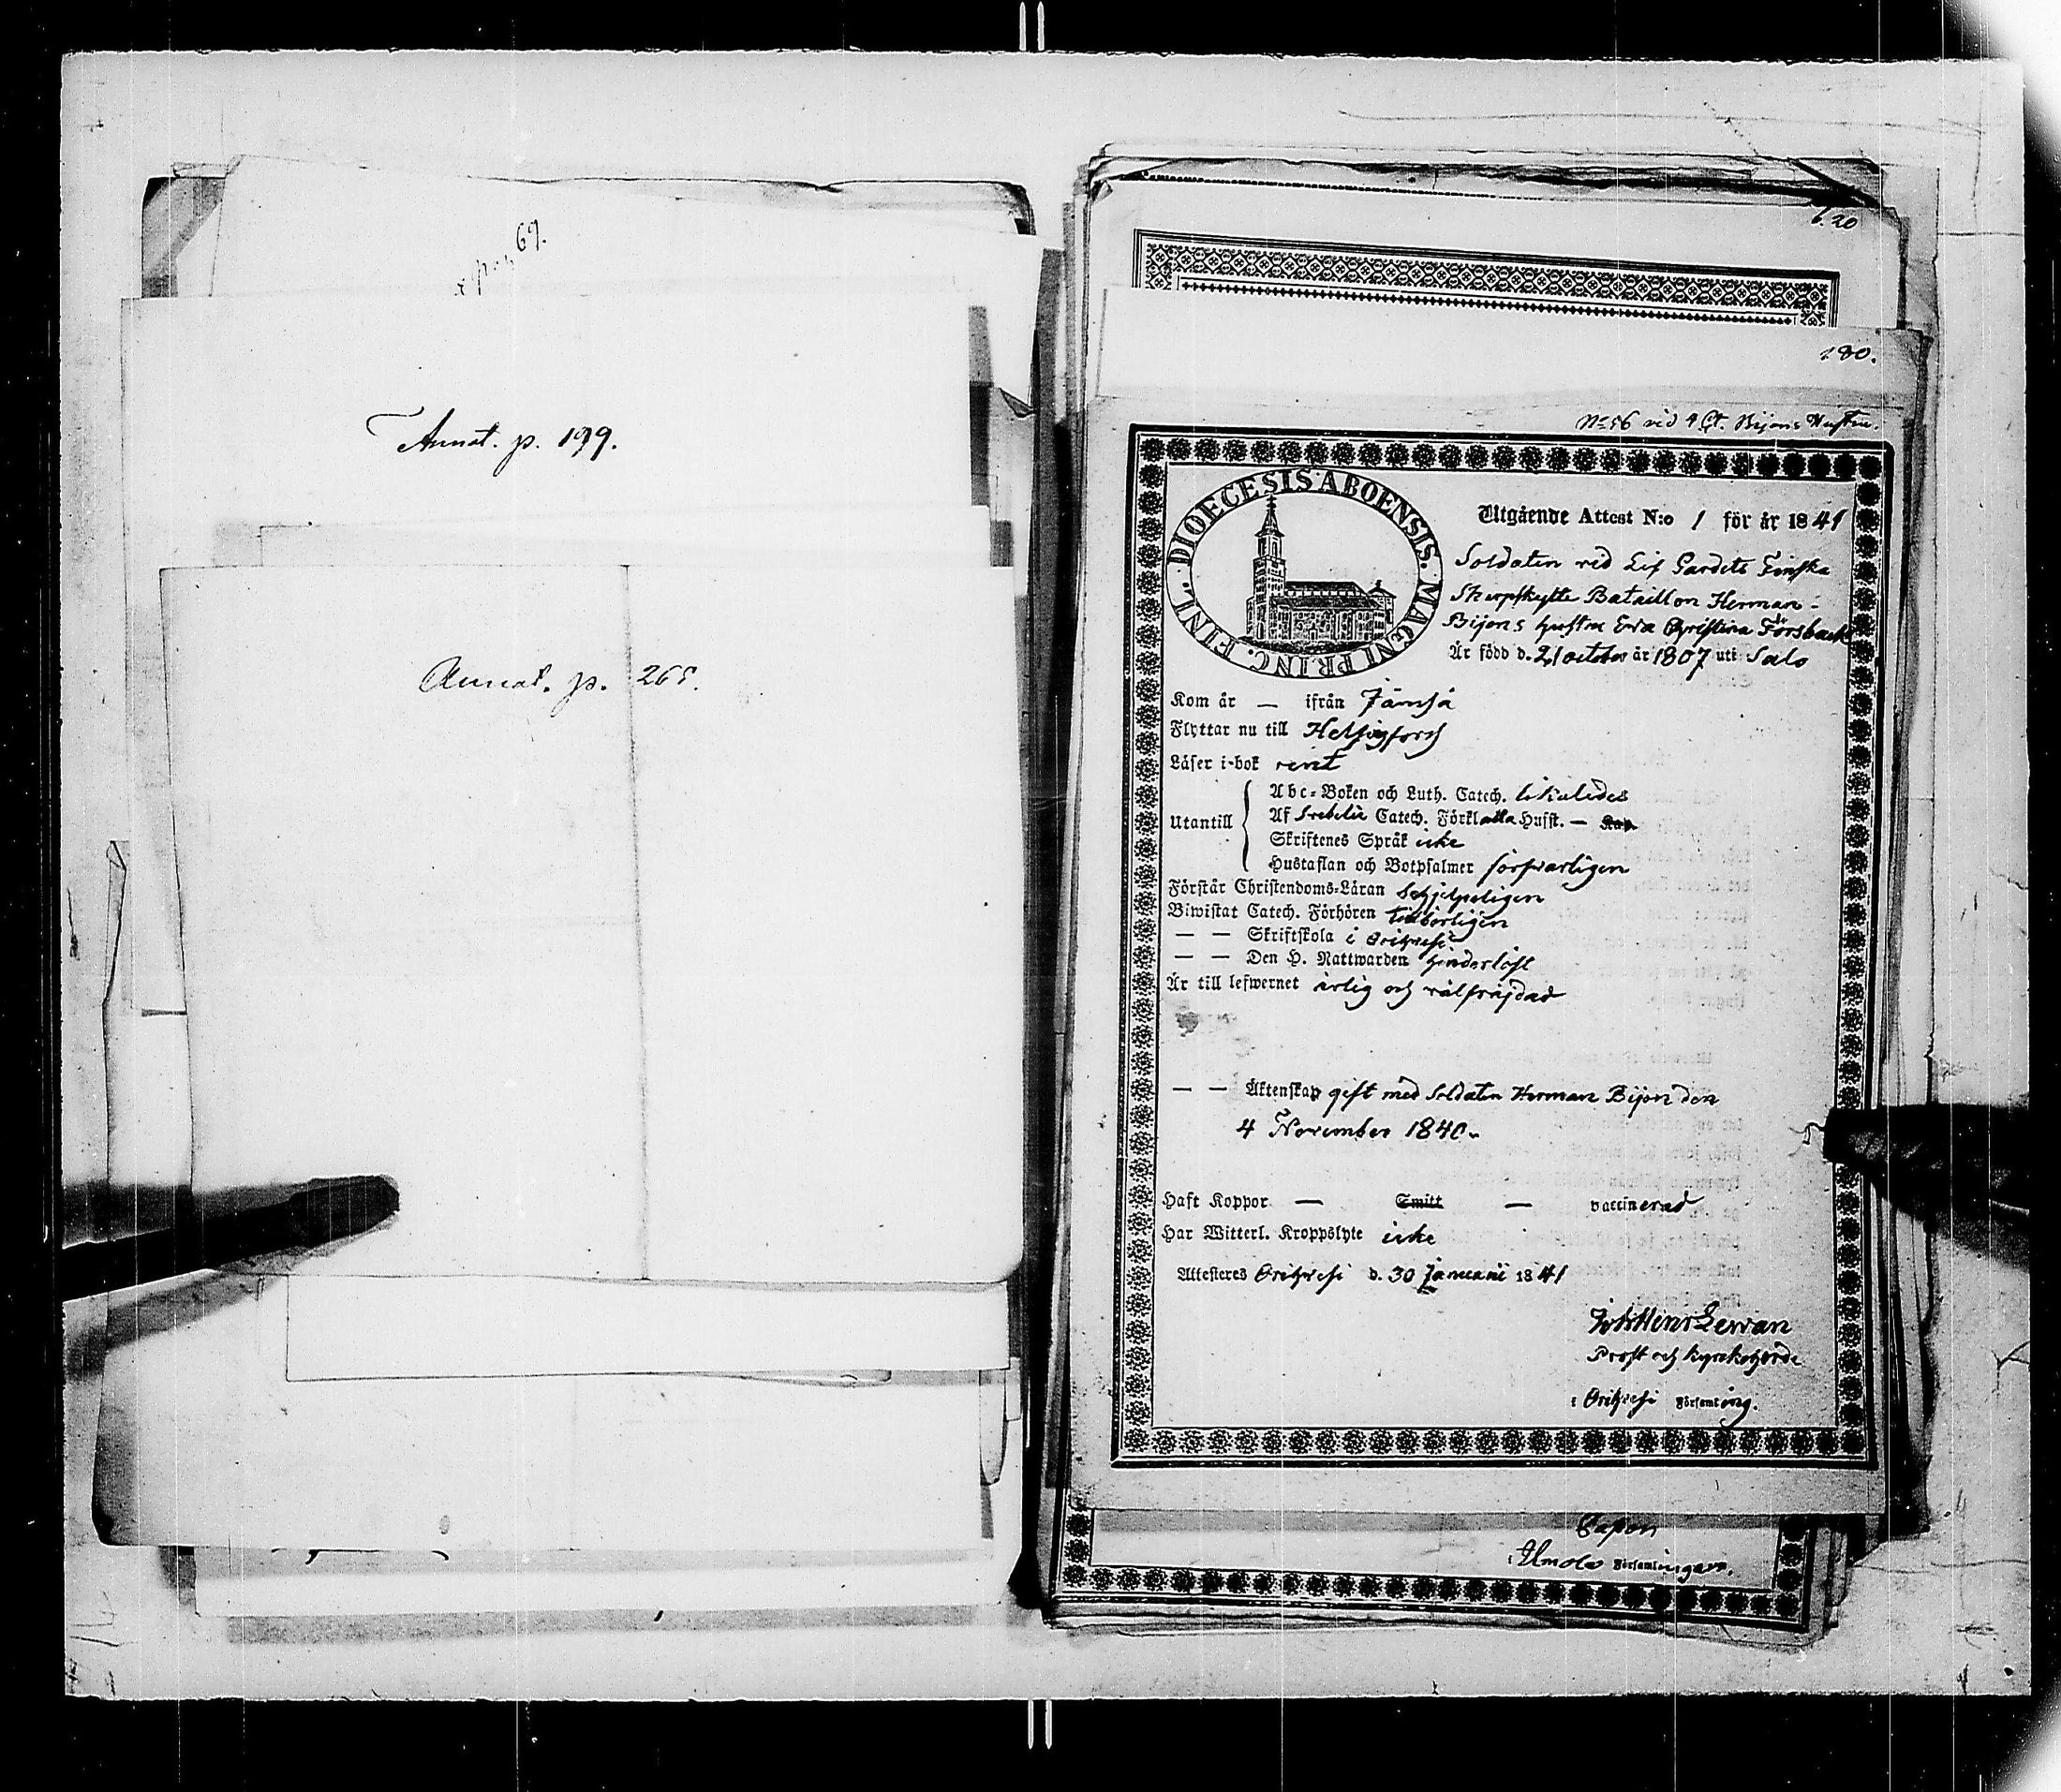 69.
Annot. p. 199.
Annot. p. 265.
6.20
180.
No 56 vid 4 Bijons Hustru.
DIOECESIS ABOENSIS. MAGNI PRINC. FINL.
Utgående Attest N:o 1 för år 1841
Soldaten vid Lif Gardets Finska
Skarpskytte Bataillon Herman
Bijons hustru Eva Christina Forsback
Är född d. 21 october år 1807 uti Salo
Kom år — ifrån Jämsä
Flyttar nu till Helsingfors
Läser i-bok rent
Utantill
Abc-Boken och Luth. Catech. likaledes
Af Svebelii Catech. Förkl alla Husst. — Kap.
Skriftenes Språk icke
Hustaflan och Botpsalmer försvarligen
Förstår Christendoms-Läran behjelpeligen
Biwistat Catech. Förhören tillbörligen
— — Skriftskola i Orihvesi
— — Den H. Nattwarden hinderlöst
Är till lefwernet ärlig och välfräjdad
— — Äktenskap gift med Soldaten Herman Bijon den
4 November 1840.
Haft Koppor — Smitt — vaccinerad
Har Witterl. Kroppslyte icke
Attesteres Orihvesi d. 30 Januarii 1841
Joh Henr Levvan
Prost och Kyrkoherde
i Orihvesi Församling.
i Ilmola Församlingen.